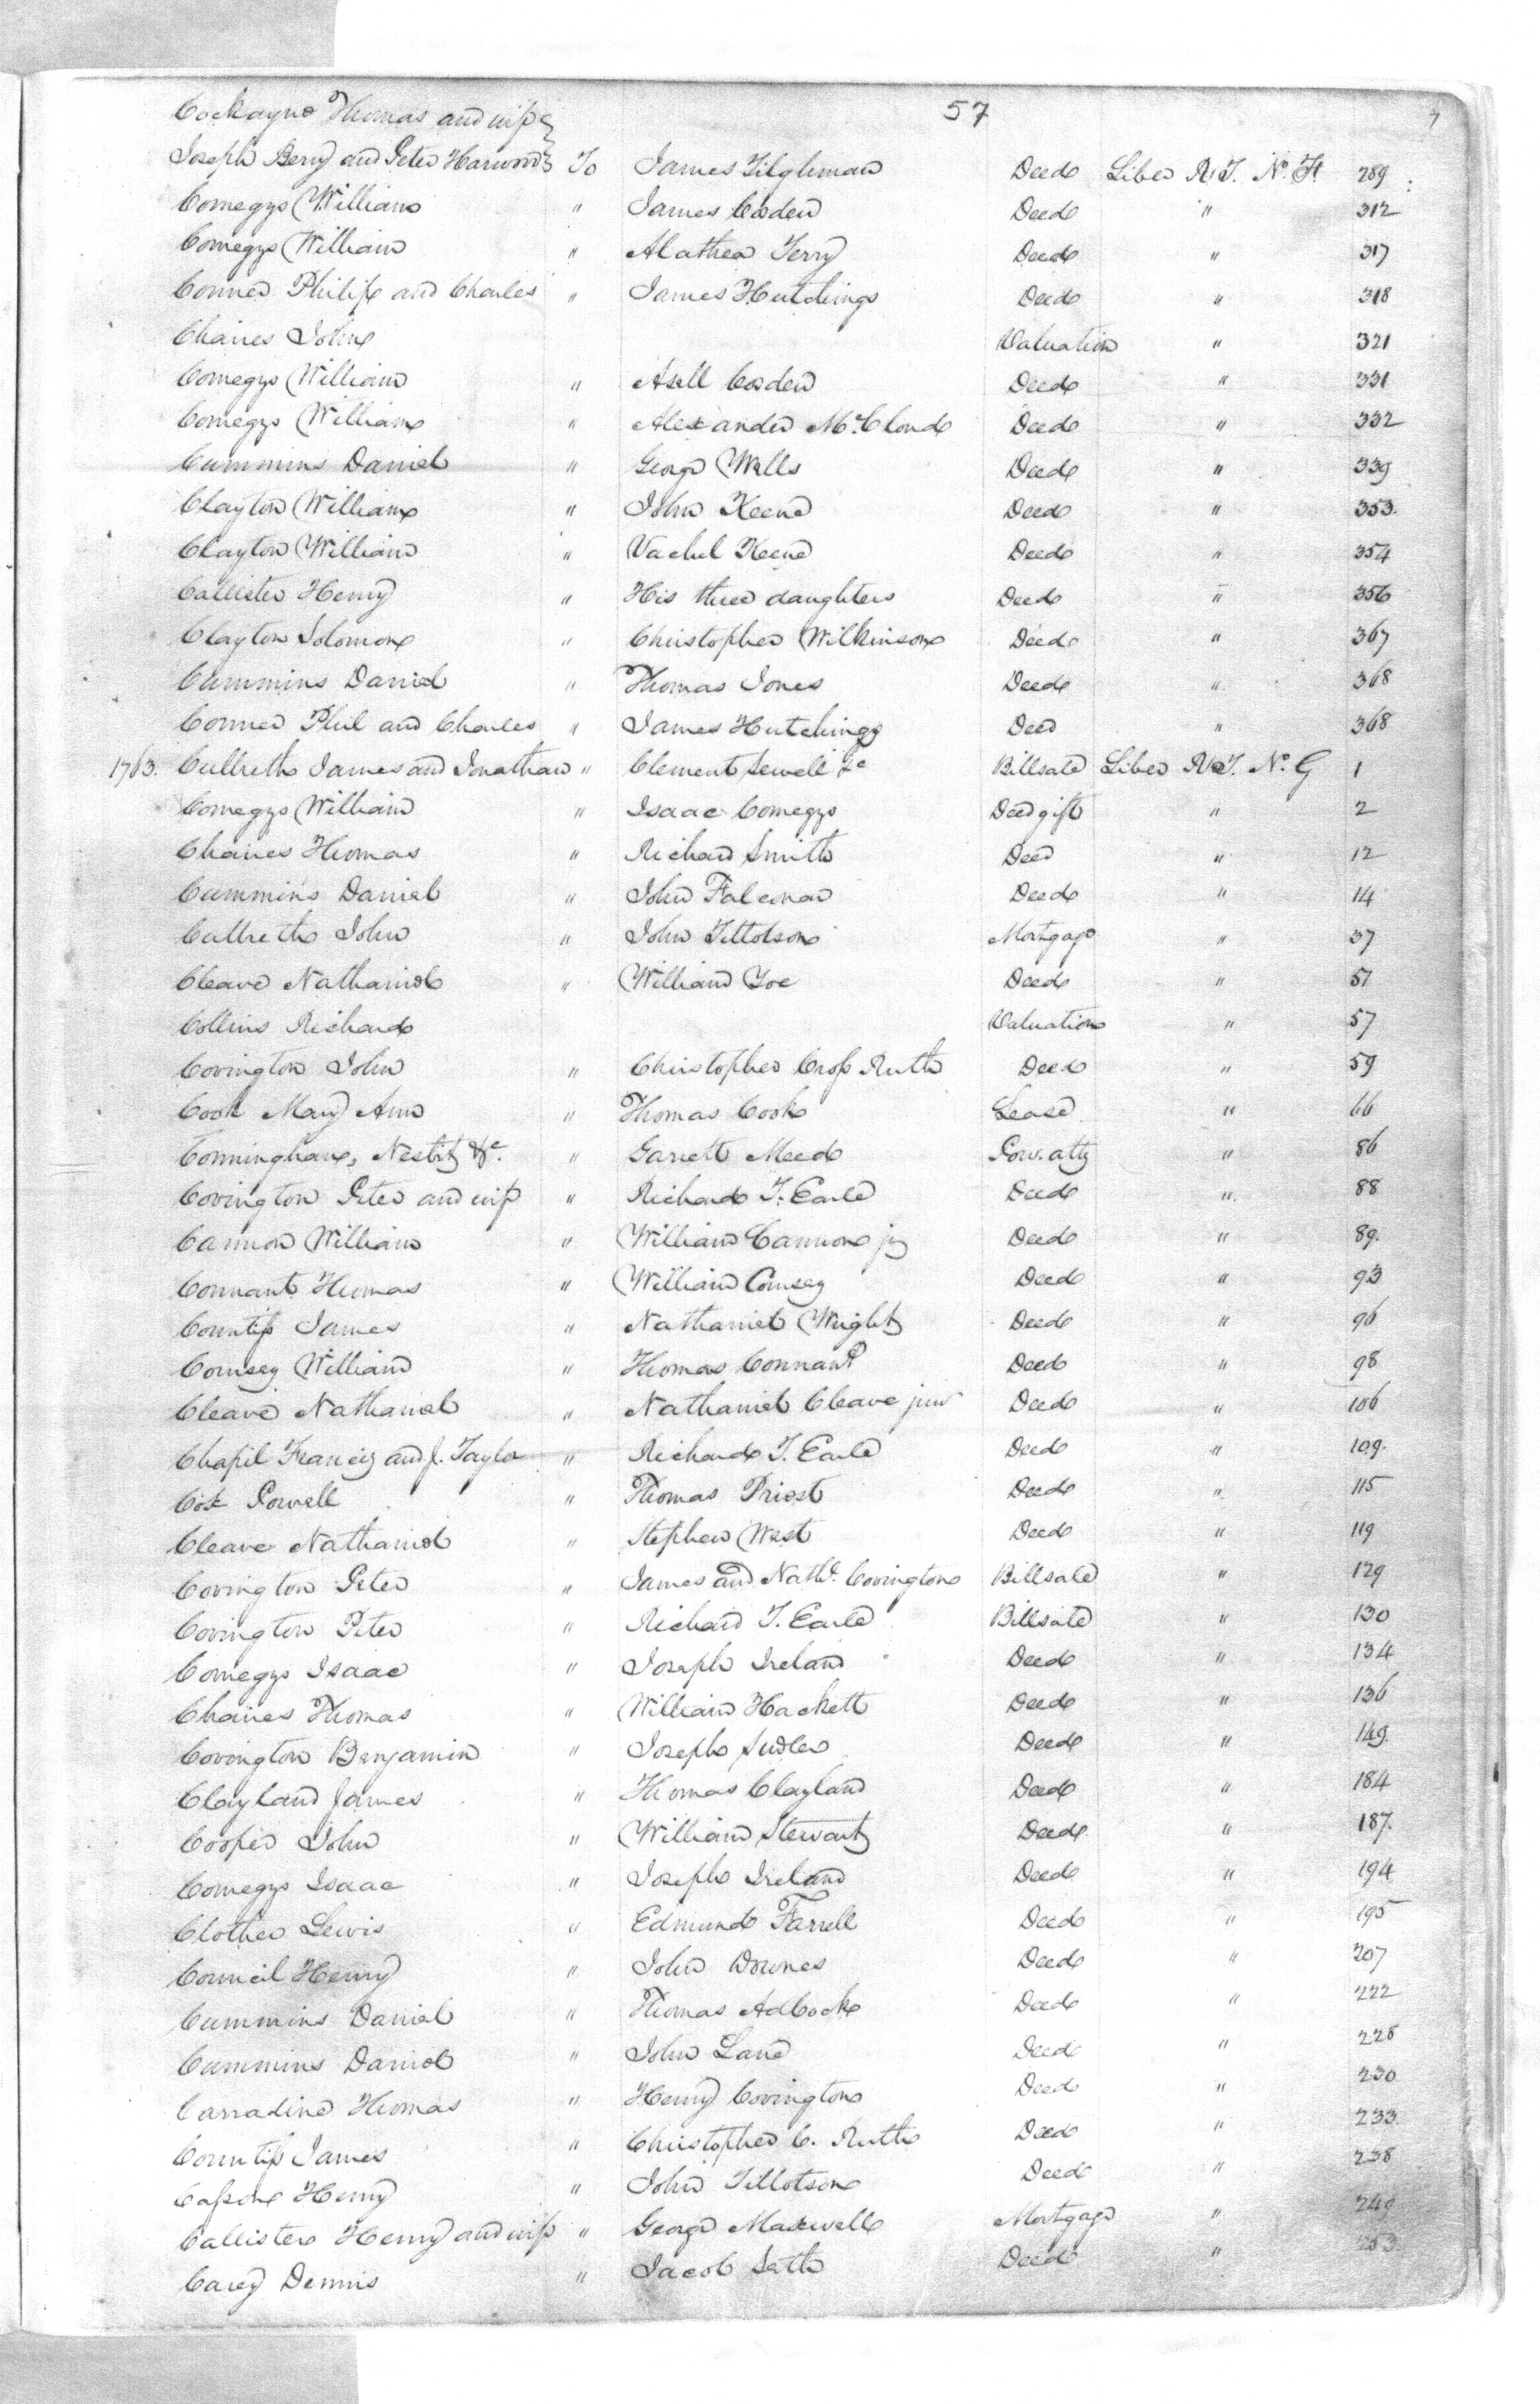 57
Cockayne Thomas and wife
Joseph Berry and Peter Harwood To James Tilghman Deed Liber R.T. No. F. 289
Comegys William " James Cosden Deed " 312
Comegys William " Alathea Terry Deed " 317
Conner Philip and Charles " James Hutchings Deed " 318
Chaires John Valuation " 321
Comegys William " Asell Cosden Deed " 331
Comegys William " Alexander McCloud Deed " 332
Cummins Daniel " George Wells Deed " 339
Clayton William " John Keene Deed " 353
Clayton William " Vachel Keene Deed " 354
Callister Henry " His three daughters Deed " 356
Clayton Solomon " Christopher Wilkinson Deed " 367
Cummins Daniel " Thomas Jones Deed " 368
Conner Phil and Charles " James Hutchings Deed " 368
1763. Culbreth James and Jonathan " Clement Sewell &c Billsale Liber R.T. No. G 1
Comegys William " Isaac Comegys Deed gift " 2
Chaires Thomas " Richard Smith Deed " 12
Cummins Daniel " John Falconar Deed " 14
Culbreth John " John Tillotson Mortgage " 37
Cleave Nathaniel " William Yoe Deed " 51
Collins Richard Valuation " 57
Covington John " Christopher Cross Ruth Deed " 59
Cook Mary Ann " Thomas Cook Lease " 66
Conningham, Nesbitt &c. " Garrett Meed Pow. atty " 86
Covington Peter and wife " Richard T. Earle Deed " 88
Cannon William " William Cannon jr Deed " 89.
Connant Thomas " William Comsey Deed " 93
Countiss James " Nathaniel Wright Deed " 96
Comsey William " Thomas Connant Deed " 98
Cleave Nathaniel " Nathaniel Cleave junr Deed " 106
Chapil Francis and J. Taylor " Richard T. Earle Deed " 109.
Cox Powell " Thomas Priest Deed " 115
Cleave Nathaniel " Stephen West Deed " 119
Covington Peter " James and Nathl. Covington Billsale " 129
Covington Peter " Richard T. Earle Billsale " 130
Comegys Isaac " Joseph Ireland Deed " 134
Chaires Thomas " William Hackett Deed " 136
Covington Benjamin " Joseph Sudler Deed " 149.
Clayland James " Thomas Clayland Deed " 184
Cooper John " William Stewart Deed " 187.
Comegys Isaac " Joseph Ireland Deed " 194
Clother Lewis " Edmund Farrell Deed " 195
Council Henry " John Downes Deed " 207
Cummins Daniel " Thomas Adcock Deed " 222
Cummins Daniel " John Lane Deed " 228
Carradine Thomas " Henry Covington Deed " 230
Countiss James " Christopher C. Ruth Deed " 233.
Casson Henry " John Tillotson Deed " 238
Callister Henry and wife " George Maxwell Mortgage " 249
Carey Dennis " Jacob Seth Deed " 253